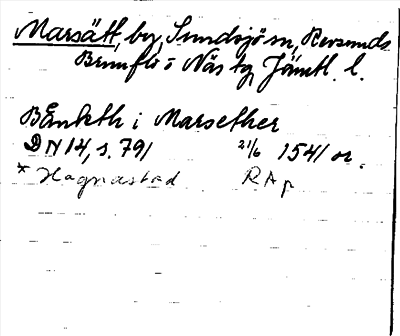 Marsätt, by, Sundsjö sn, Revsunds
Brunflo o Näs tg Jämtl. l.
Bånkth i Marsether
DN 14, s. 791 21/6 1541 or.
* Hagnastad RAp